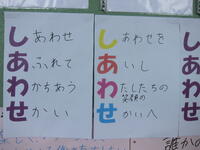 しあわせ
ふれて
わかちあう
せかい
しあわせを
あいし
わたしたちの
笑顔の
せかいへ
誰かの